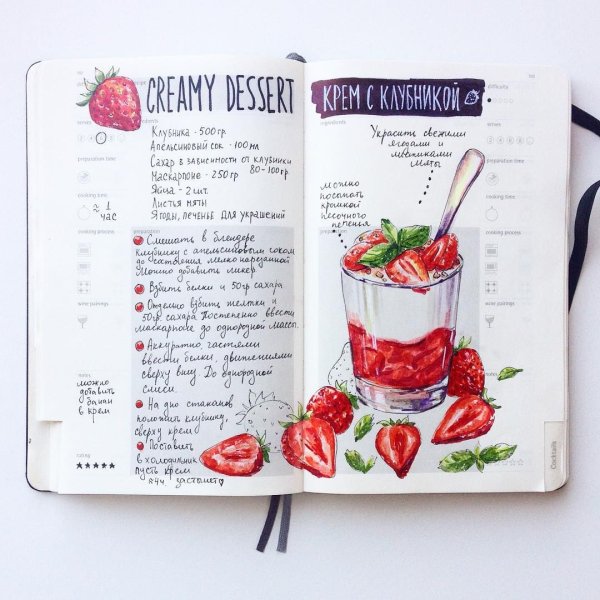 CREAMY DESSERT
Клубника - 500 гр.
Апельсиновый сок - 100 мл
Сахар в зависимости от клубники
80-100 гр.
Маскарпоне - 250 гр
Яйца - 2 шт.
Листья мяты
Ягоды, печенье для украшений
preparation time
cooking time
≈ 1
час
cooking process
preparation
Смешать в блендере
клубнику с апельсиновым соком
до состояния мелко нарезанной
Можно добавить ликер
Взбить белки и 50 гр. сахара
Отдельно взбить желтки и
50 гр. сахара. Постепенно ввести
маскарпоне до однородной массы.
wine pairings
Аккуратно, частями
ввести белки, движениями
сверху вниз. До однородной
смеси.
notes
можно
добавить
банан
в крем
На дно стаканов
положить клубнику,
сверху крем
Поставить
в холодильник
пусть крем
застынет
rating
КРЕМ С КЛУБНИКОЙ
difficulty
ingredients
serves
Украсить свежими
ягодами и
листиками
мяты
preparation time
можно
посыпать
крошкой
песочного
печенья
cooking time
preparation
cooking process
wine pairings
notes
Cocktails